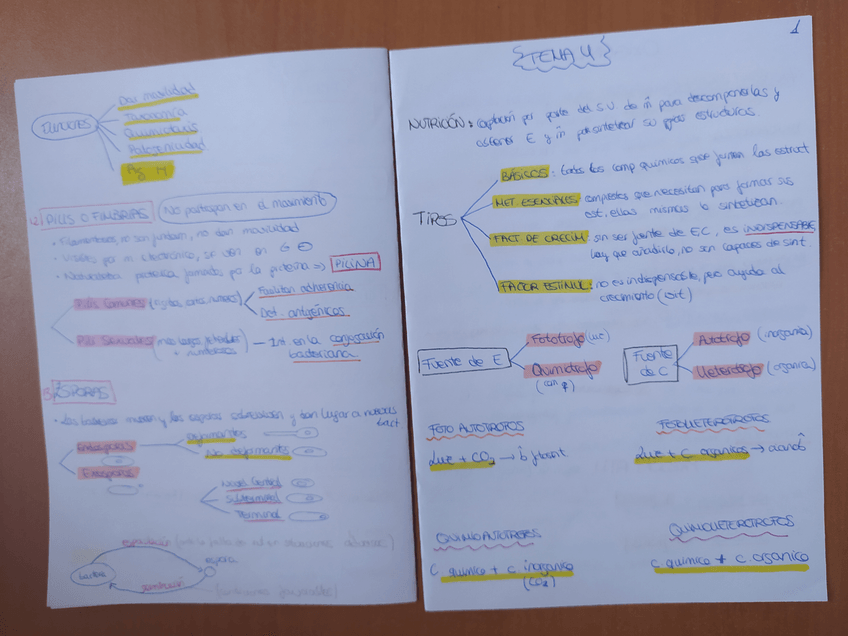 FUNCIONES
Dar movilidad
Taxonomía
Quimiotaxis
Patogenicidad
Pág 14
PILIS O FIMBRIAS
No participan en el movimiento
• Filamentosos, no son fundam, no dan movilidad
• Visibles por m electrónico, se ven en G ⊖
• Naturaleza proteica formados por la proteína => PILINA
Pilis Comunes (rígidos, cortos, numeros)
Facilitan adherencia
Det. antigénicos
Pili Sexuales (mas largos,
numerosos) — Int en la conjugación
bacteriana
ESPORAS
• Las bacterias mueren y las esporas y dan lugar a nuevas
bact
Endosporas
Deformantes
No deformantes
Exosporas
Central
Subterminal
Terminal
esporulación
espora
bacteria
germinación
1
{TEMA 4}
NUTRICIÓN: captación por parte del S.V de m̂ para descomponerlas y
obtener E y m̂ para sintetizar su propias estructuras.
TIPOS
BÁSICOS: todos los comp químicos que forman las estruct
MET ESENCIALES: compuestos que necesitan para formar sus
est, ellas mismas lo sintetizan.
FACT DE CRECIM: sin ser fuente de E C, es INDISPENSABLE,
hay que añadirlo, no son capaces de sint
FACTOR ESTIMUL: no es indispensable, pero ayuda al
crecimiento (vit)
Fuente de E
Fototrofo (luz)
Quimiotrofo
(comp q)
Fuente
de C
Autotrofo (inorgánica)
Heterotrofo (orgánica)
FOTO AUTOTROFOS
Luz + CO₂ → b̂ fotosint
FOTOHETEROTROFOS
Luz + C orgánicos → cianob̂
QUIMIOAUTOTROFOS
C químico + C inorgánico
(CO₂)
QUIMIOHETEROTROFOS
C químico + C orgánico